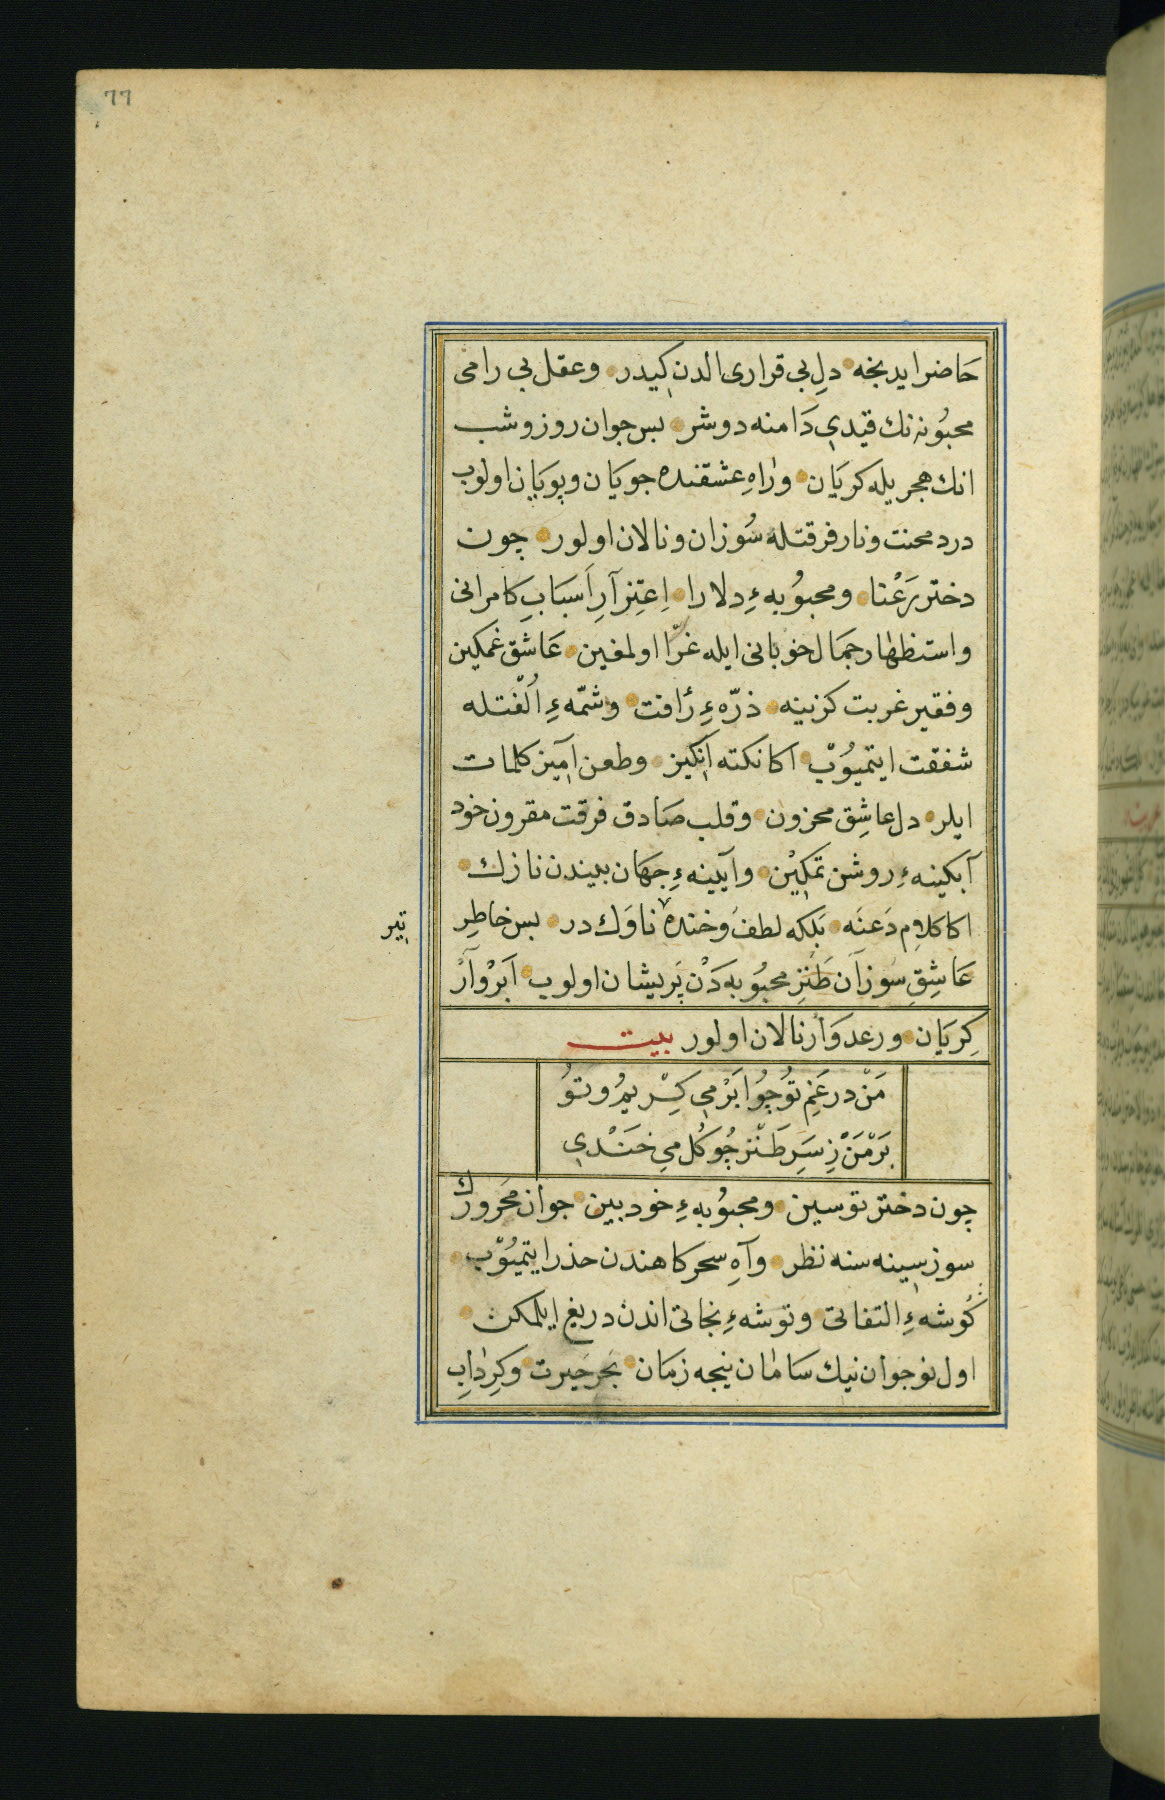 77
حَاضر ایدیجه دلِ بی قراری الدن كیدر وعقل بی رامی
محبُوبه نك قیدی دَامنه دوشر بس جوان روز وشب
انك هجریله كریَان ورَاهِ عشقنده جویَان وپویَان اولوب
درد محنت ونار فرقتله سُوزان ونالان اولور چون
دختر رَعْنا ومحبوُبهٔ دلارا اِعتِزآرِ اَسبَابِ كامرانی
واستظهار جمَال خوبانی ایله غرّا اولمغین عَاشق غمكین
وفقیر غربت كزینه ذرّهٔ رُافت وشمّهٔ اُلْفتله
شفقت ایتمیوُبْ اكا نكته اَنكیز وطعن امَیز كلمات
ایلر دل عاشِق محزون وقلب صَادق فرقت مقرون خود
آبكینهٔ روشن تمكیْن وآیینهٔ جهَان بیندن نازك
اكا كلامِ دَعنَه بَلكه لطف وخنده ناوَك در بس خاطِر
تیر
عَاشِقِ سَوزآن طَنْزِ محبُوبه دَنْ پَریشان اولوب اَبرْوَآرْ
كِریَان ورعد وَار نالان اولور بیت
مَنْ در غَمِ تُو چُو اَبَرْ مِی كِـرْیمُ و تُوُ
بَرْ مَنْ زِ سَرِ طَنْز چُو كُل مِی خَنْدی
چون دختر توسین ومحبُوبهٔ خود بین جوان محَرورك
سوز سینه سنه نظر وآهِ سحركاهندن حذر ایتمیُوّب
كُوشهٔ التفاتی وتوشهٔ نجاتی اندن دریغ ایلمكن
اول نوجوان نیك سَامَان نیجه زمَان بَحر حَیرت وكِردَابِ